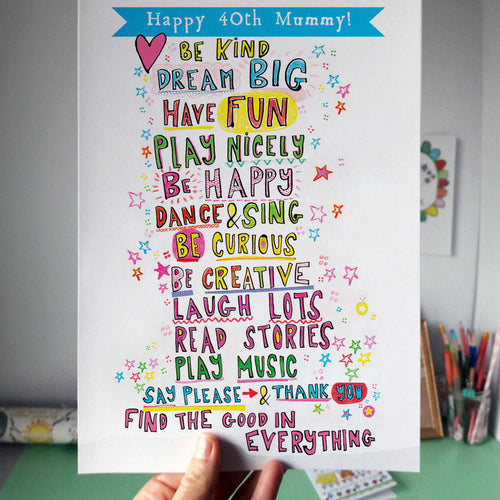 Happy 40th Mummy!
BE KIND
DREAM BIG
HAVE FUN
PLAY NICELY
Be HAPPY
DANCE & SING
BE CURIOUS
BE CREATIVE
LAUGH LOTS
READ STORIES
PLAY MUSIC
SAY PLEASE → & THANK YOU
FIND THE GOOD IN
EVERYTHING